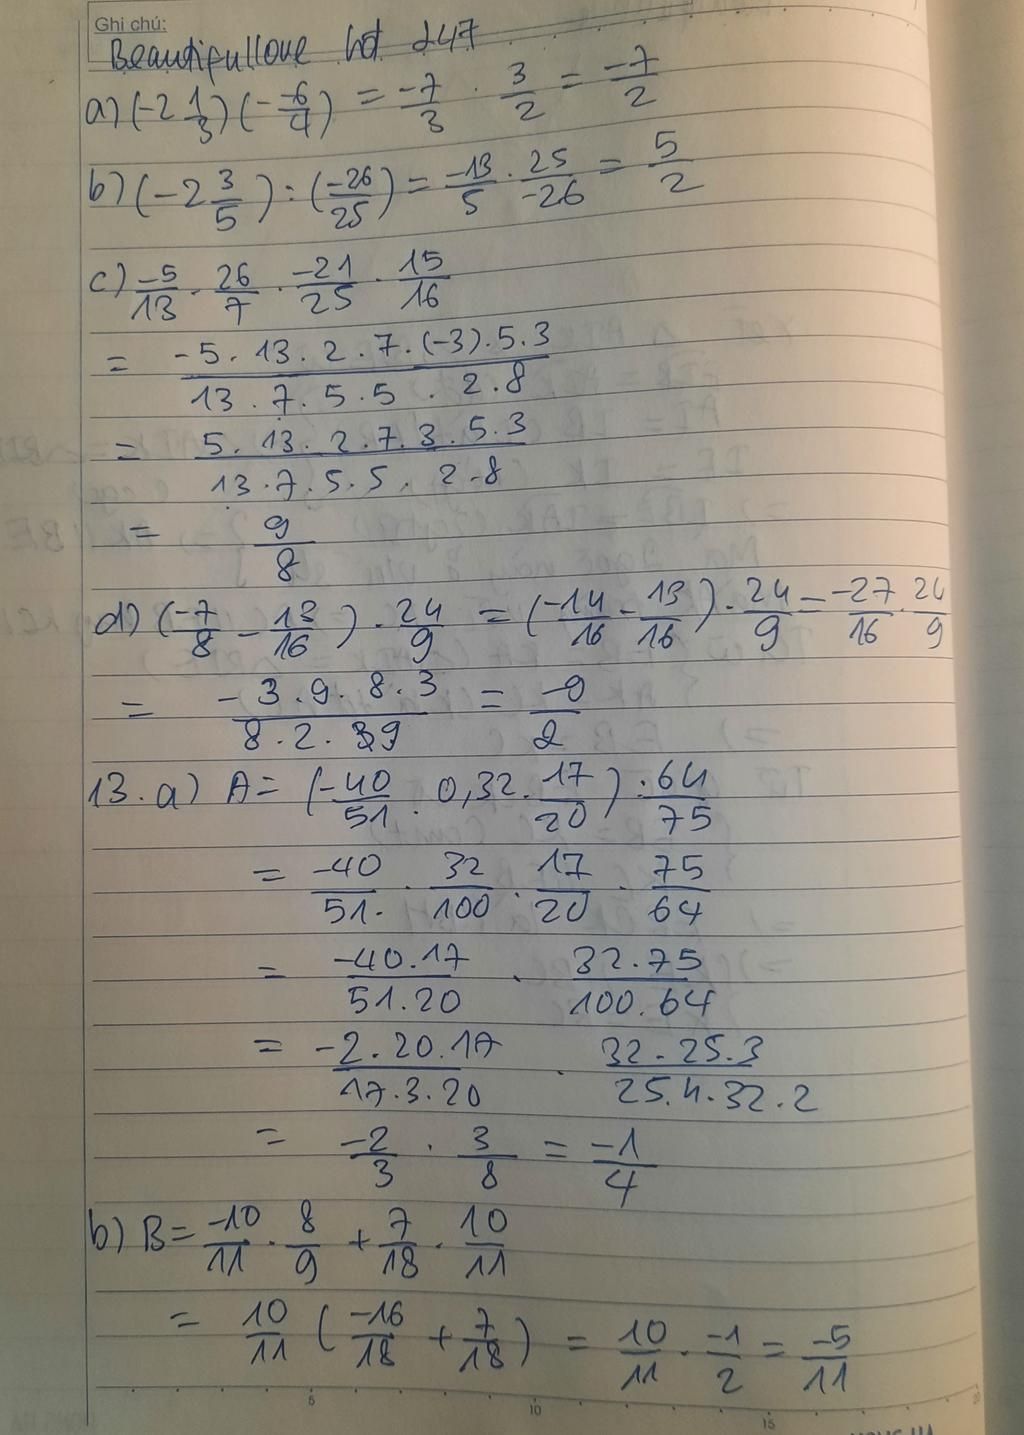 Ghi chú:
Beautifullove hot 247
a) (-2 1/3)(- -6/4) = -7/3 . 3/2 = -7/2
b) (-2 3/5) : (-26/25) = -13/5 . 25/-26 = 5/2
c) -5/13 . 26/7 . -21/25 . 15/16
= -5.13.2.7.(-3).5.3 / 13.7.5.5.2.8
= 5.13.2.7.3.5.3 / 13.7.5.5.2.8
= 9/8
d) (-7/8 - 13/16) . 24/9 = (-14/16 - 13/16) . 24/9 = -27/16 . 24/9
= -3.9.8.3 / 8.2.9 = -9/2
13. a) A = (-40/51 . 0,32 . 17/20) : 64/75
= -40/51 . 32/100 . 17/20 . 75/64
= -40.17/51.20 . 32.75/100.64
= -2.20.17/17.3.20 . 32.25.3/25.4.32.2
= -2/3 . 3/8 = -1/4
b) B = -10/11 . 8/9 + 7/18 . 10/11
= 10/11 (-16/18 + 7/18) = 10/11 . -1/2 = -5/11
5 10 15 20